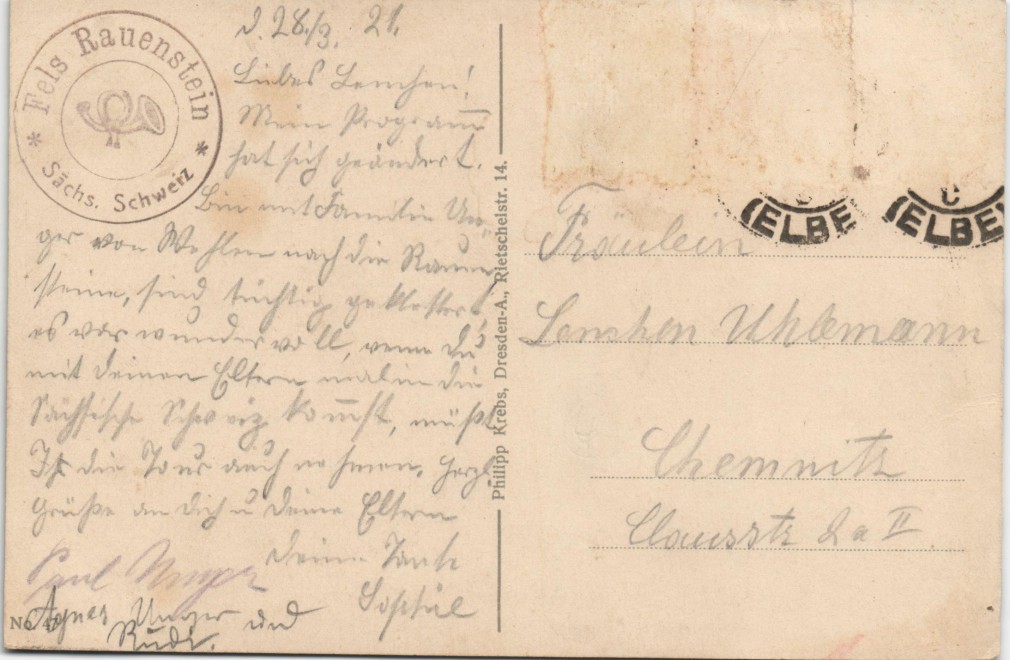 Fels Rauenstein
* Sächs. Schweiz *
d. 28./3. 21.
Liebes Lenchen!
Mein Programm
hat sich geändert.
Bin mit Familie Un-
ger von Wehlen nach die Rauen
steine, sind tüchtig geklettert,
es war wundervoll, wenn Du
mit Deinen Eltern mal in die
Sächsische Schweiz kommst, müßt
Ihr die Tour auch nehmen. Herzl.
Grüße an Dich u Deine Eltern
Deine Tante
Paul Unger
Agnes Unger und
Rudi.
No.
Philipp Krebs, Dresden-A., Rietschelstr. 14.
(ELBE
(ELBE)
Fräulein
Lenchen Uhlemann
Chemnitz
Clausstr II.